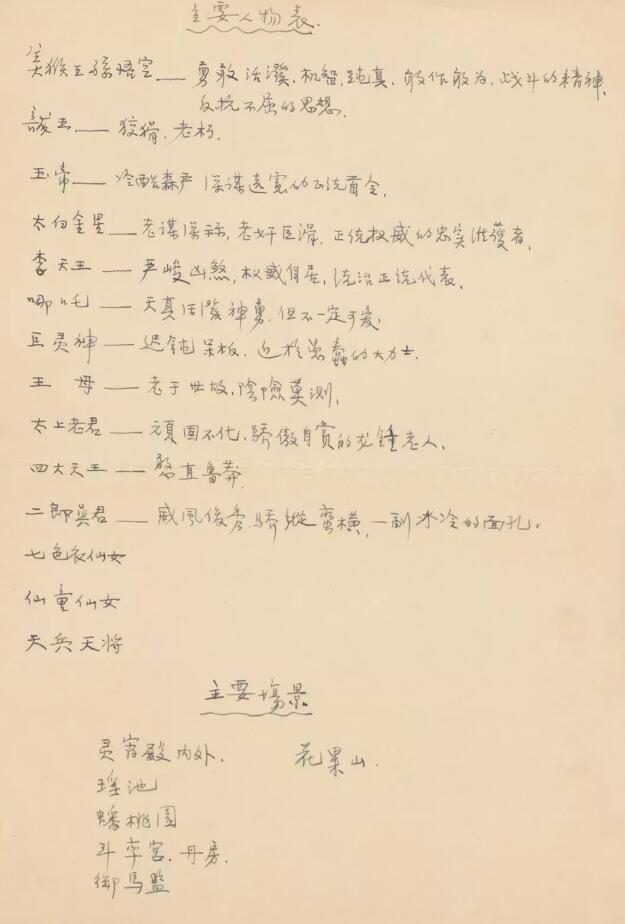 主要人物表.
美猴王孫悟空——勇敢活潑、机智、純真、敢作敢为、战斗的精神、
反抗不屈的思想.
龍王——狡猾、老朽.
玉帝——冷酷森严 深謀遠慮的正统首令.
太白金星——老謀深祘, 老奸巨滑, 正统权威的忠实
李天王——严峻凶煞, 权威自居, 统治正统代表.
哪吒——天真活潑神勇, 但不一定可爱.
巨灵神——迟钝呆板、近於愚蠢的大力士.
王 母——老于世故、陰險莫測.
太上老君——頑固不化、驕傲自賞的龙鍾老人.
四大天王——憨直魯莽.
二郎真君——威風俊秀、驕縱蛮横, 一副冰冷的面孔。
七色衣仙女
仙童仙女
天兵天将
主要場景
灵霄殿内外. 花果山.
瑶池
蟠桃园
斗率宫. 丹房.
御馬監